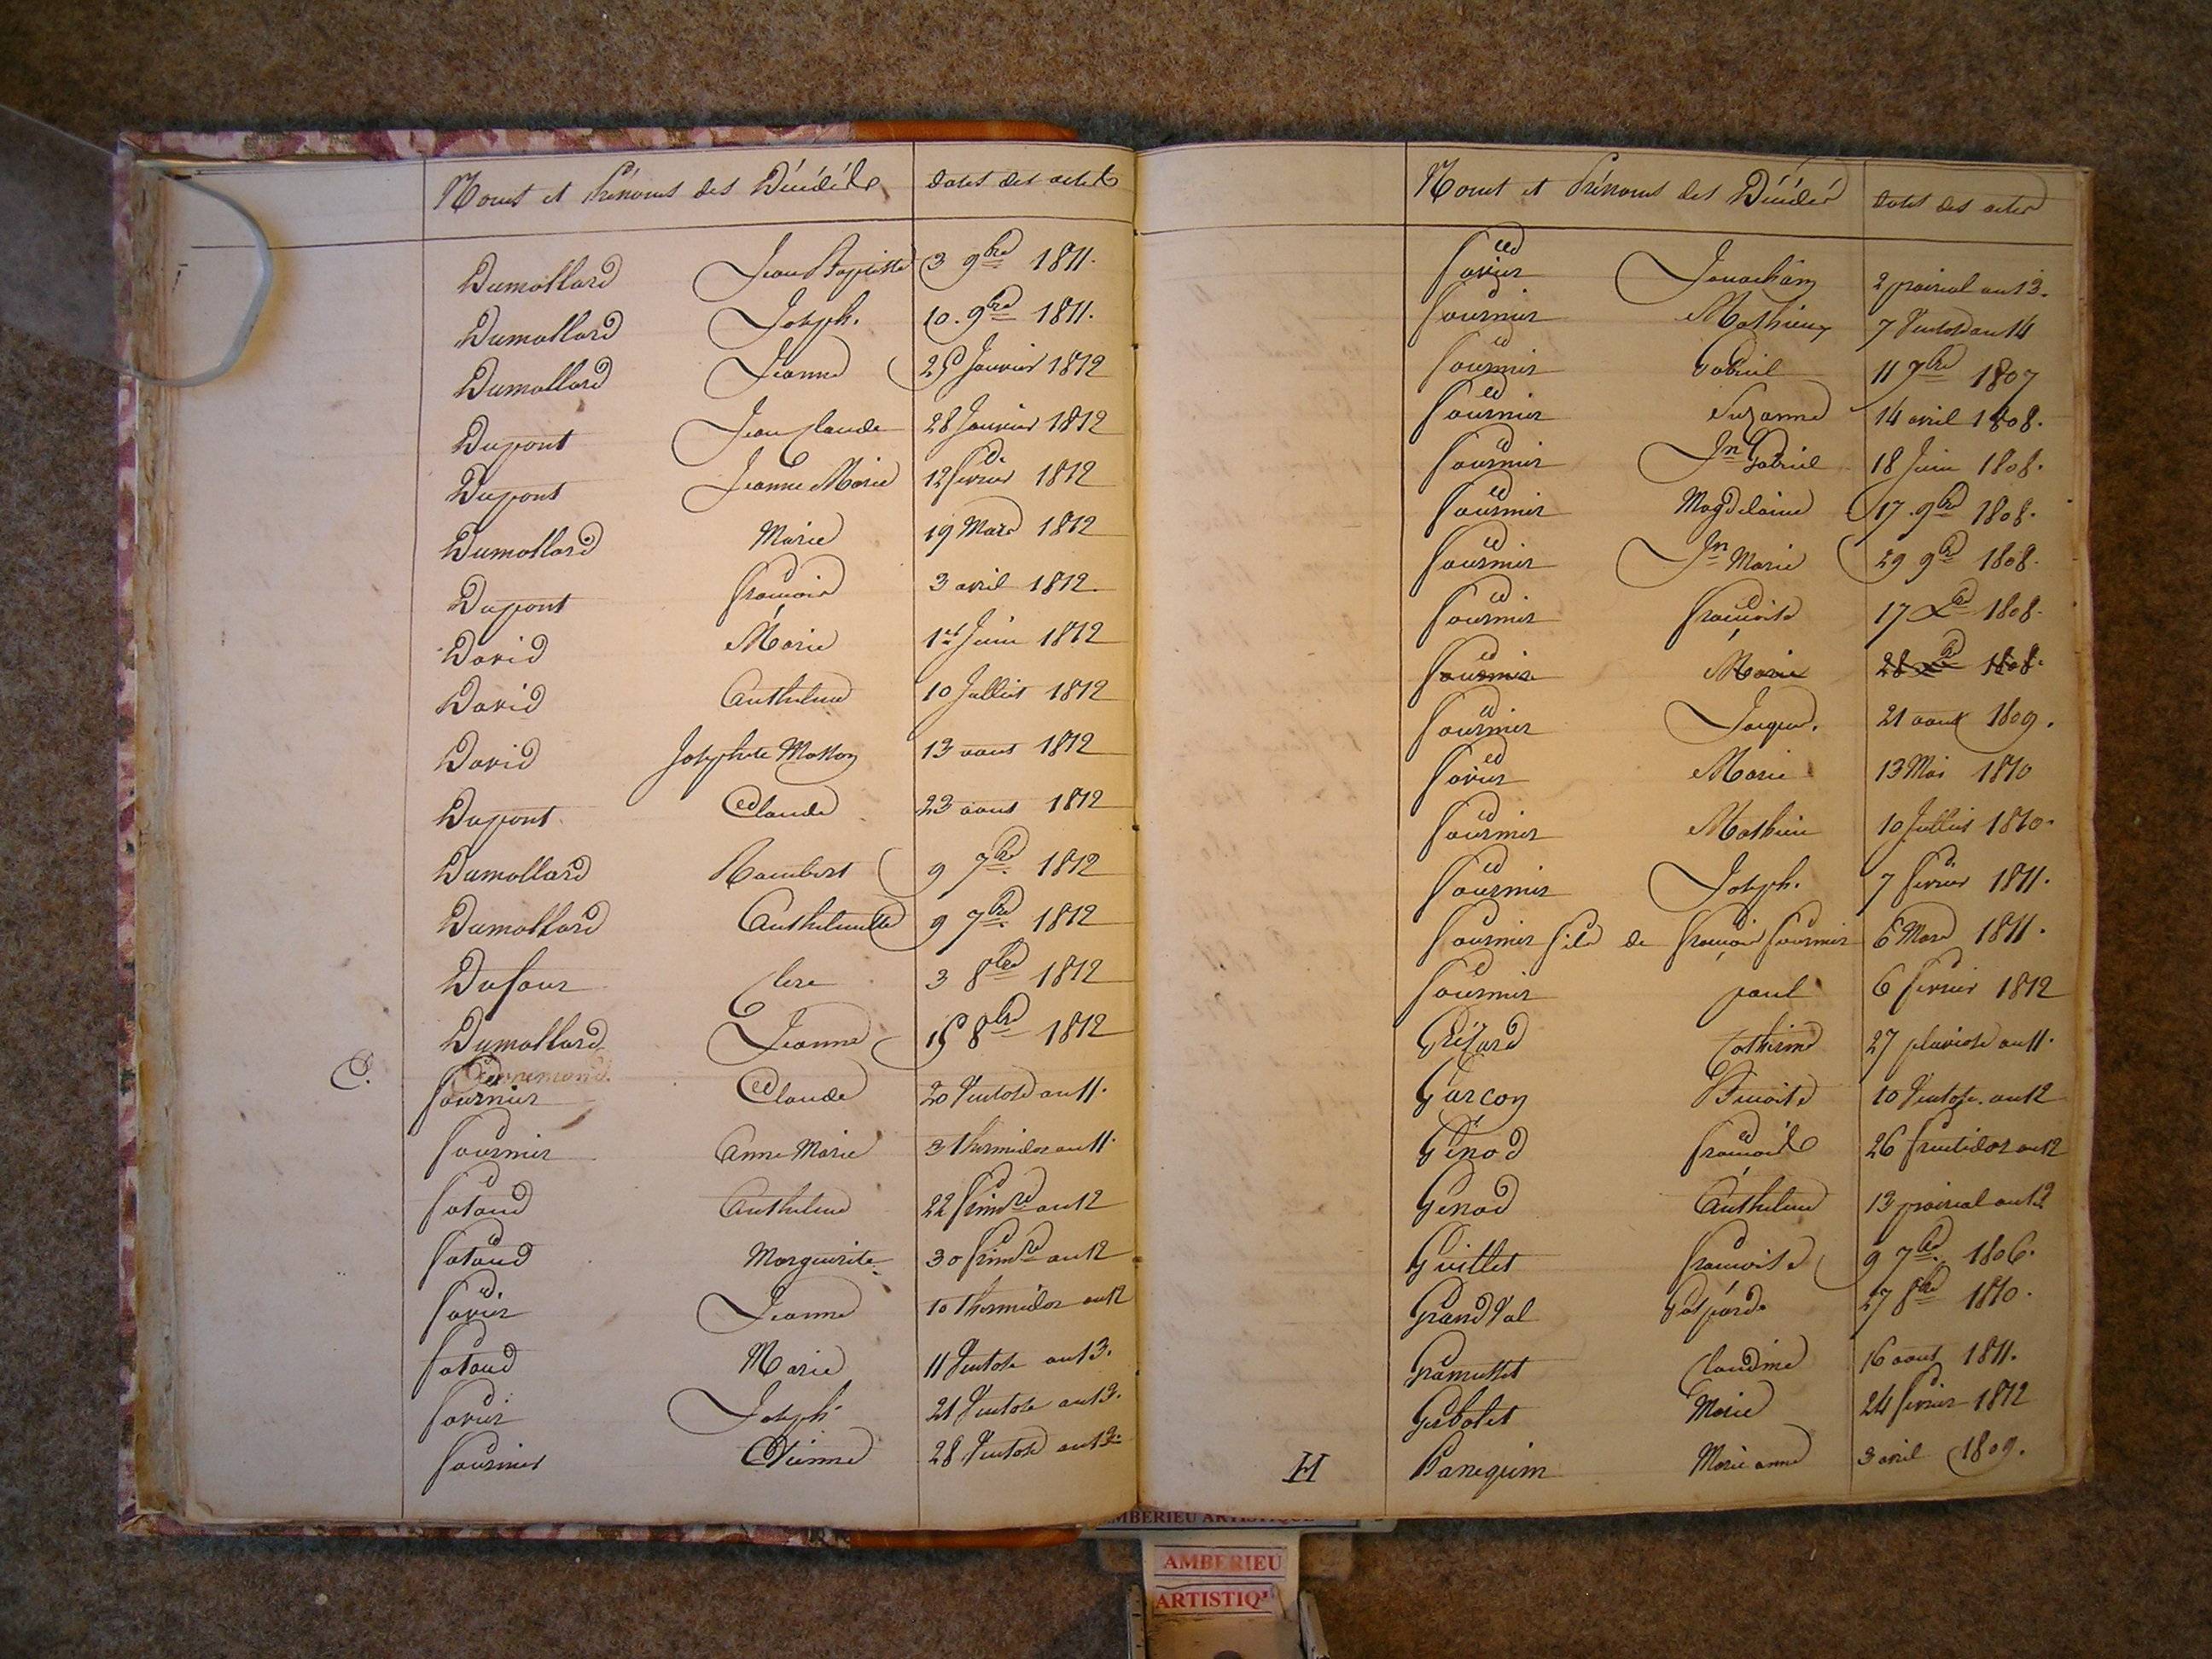 Noms et Prénoms des Décédés Dates des actes
Dumollard Jean Baptiste 3 9bre 1811.
Dumollard Joseph. 10. 9bre 1811.
Dumollard Jeanne 25 Janvier 1812
Dupont Jean Claude 28 Janvier 1812
Dupont Jeanne Marie 12 fevrier 1812
Dumollard Marie 19 Mars 1812
Dupont françois 3 avril 1812.
David Marie 1er Juin 1812
David Anthelme 10 Julliet 1812
David Josephte Mathon 13 aout 1812
Dupont Claude 23 aout 1812
Dumollard Rambert 9 7bre 1812
Dumollard Anthelmette 9 7bre 1812
Dufour Clere 3 8bre 1812
Dumollard Jeanne 15 8bre 1812
fournier Claude 20 Ventose an 11.
fournier Anne Marie 3 thermidor an 11.
fataud Anthelme 22 frimre an 12
fataud Marguerite 30 frimre an 12
favier Jeanne 10 thermidor an 12
fataud Marie 11 Ventose an 13.
favier Joseph 21 Ventose an 13.
fournier Etienne 28 Ventose an 13.
Noms et Prénoms des Décédés dates des actes
favier Jouachim 2 prairial an 13.
fournier Mathieu 7 Ventose an 14
fournier Gabriel 11 7bre 1807
fournier Suzanne 14 avril 1808.
fournier Jn Gabriel 18 Juin 1808.
fournier Magdelaine 17. 9bre 1808.
fournier Jn Marie 29 9bre 1808.
fournier françoise 17 Xbre 1808.
fournier Marie 28 Xbre 1808.
fournier Jacques. 21 aout 1809.
favier Marie 13 Mai 1810
fournier Mathieu 10 Julliet 1810.
fournier Joseph. 7 fevrier 1811.
fournier fils de françois fournier 6 Mars 1811.
fournier paul 6 fevrier 1812
Grisard Catherine 27 pluviose an 11.
Garcon Benoite 10 Ventose. an 12
Génod françoise 26 fructidor an 12
Genod Anthelme 13 prairial an 13
Guillet françoise 9 7bre 1806.
GrandVal Gaspard 27 8bre 1810.
Gramusset Claudine 16 aout 1811.
Gerbolet Marie 24 fevrier 1812
H Hanequin Marie anne 3 avril 1809.
AMBERIEU ARTISTIQUE
AMBERIEU
ARTISTIQ